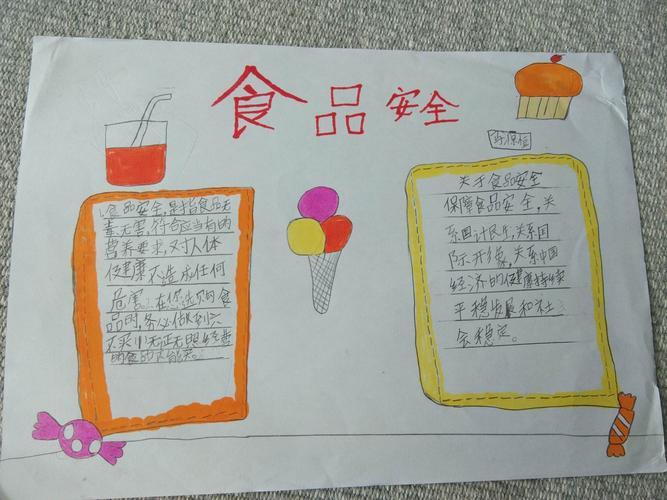 食品安全
1.食品安全,是指食品无
毒无害,符合应当有的
营养要求,对人体
健康不造成任何
危害。2.在你选购食
品时,务必做到六
不买
的食品不能买。
关于食品安全
保障食品安全,关
系国计民生,关系国
际形象,关系中国
经济的健康持续
平稳发展和社
会稳定。